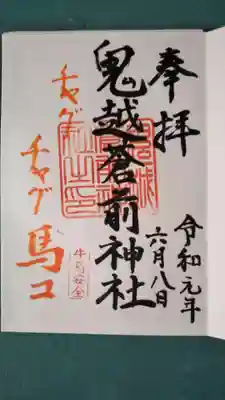 奉拝
令和元年
六月八日
鬼越蒼前神社
チャグ
チャグ
馬コ
牛馬安全